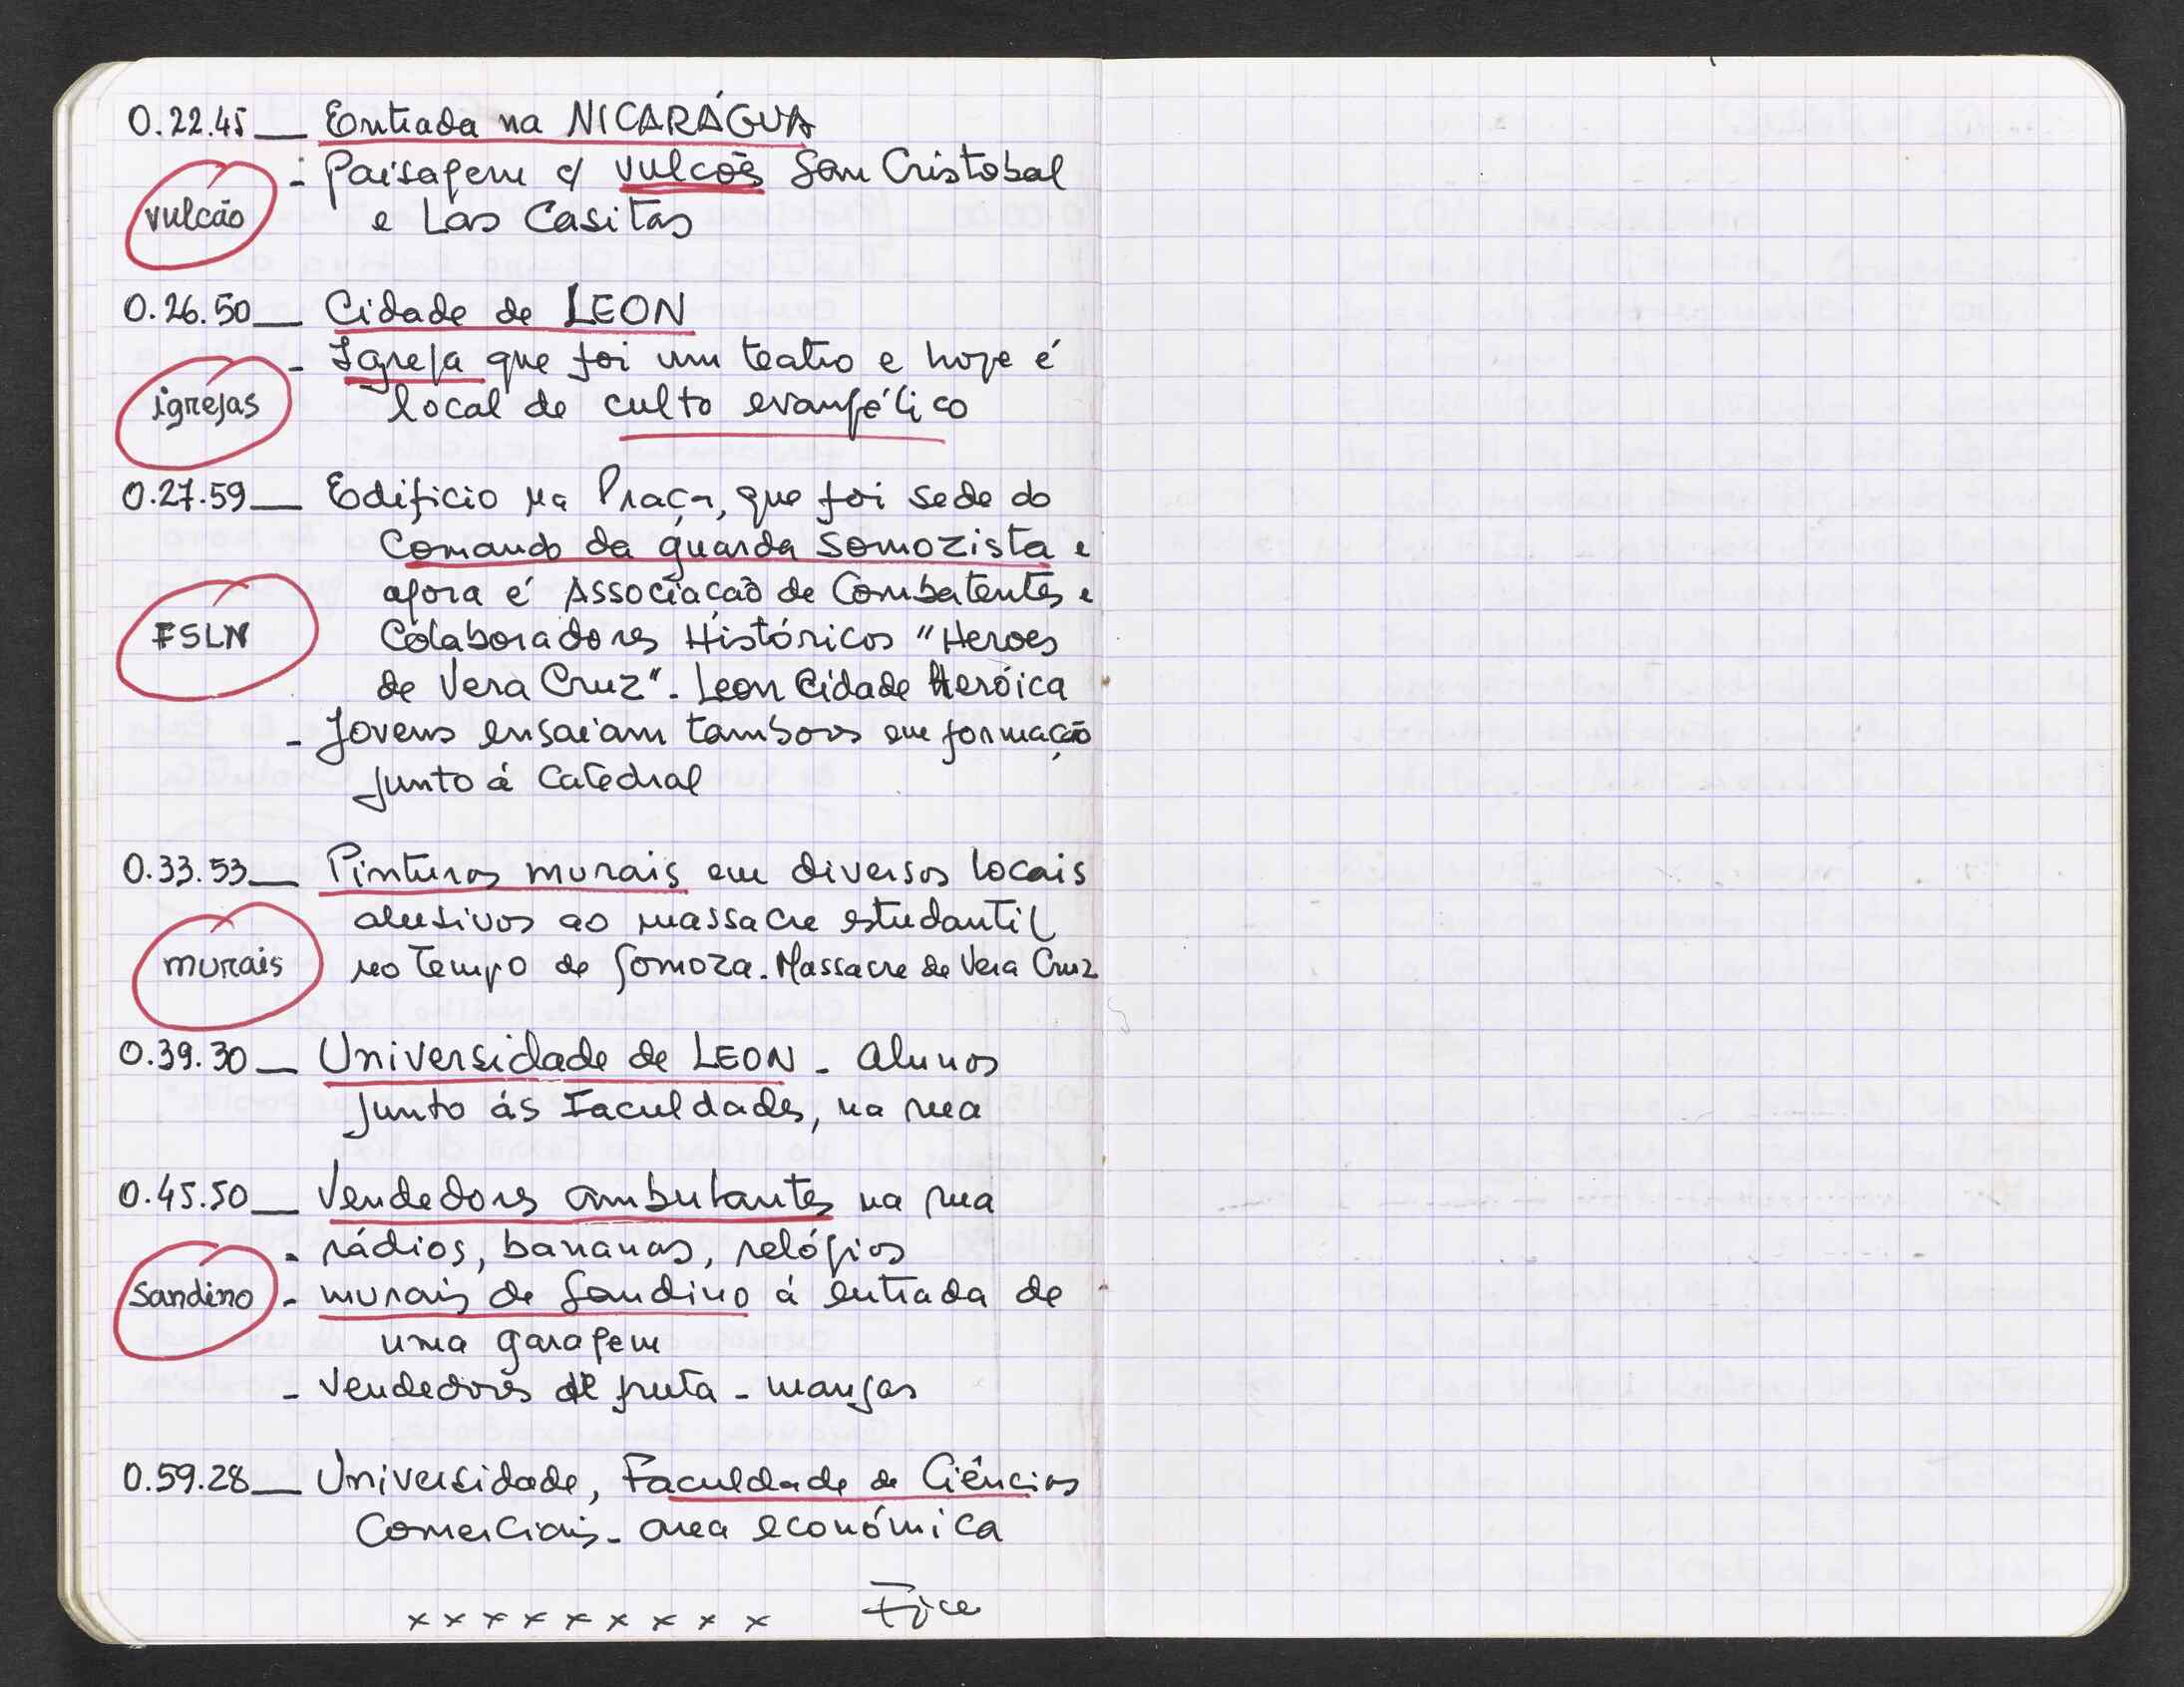 0.22.45 __ Entrada na NICARÁGUA
- Paisagem c/ vulcões San Cristobal
vulcão
e Las Casitas
0.26.50 __ Cidade de LEON
- Igreja que foi um teatro e hoje é
igrejas
local de culto evangélico
0.27.59 __ Edificio na Praça, que foi sede do
Comando da guarda somozista e
agora é Associação de Combatentes e
FSLN
Colaboradores Históricos "Heroes
de Vera Cruz". Leon Cidade Heróica
- Jovens ensaiam tambores em formação
junto á Catedral
0.33.53 __ Pinturas murais em diversos locais
alusivos ao massacre estudantil
murais
no tempo de Somoza. Massacre de Vera Cruz
0.39.30 __ Universidade de LEON - alunos
junto ás Faculdades, na rua
0.45.50 __ Vendedores ambulantes na rua
- rádios, bananas, relógios
sandino
- murais de Sandino á entrada de
uma garagem
- vendedores de fruta - mangas
0.59.28 __ Universidade, Faculdade de Ciências
Comerciais - area económica
x x x x x x x x x